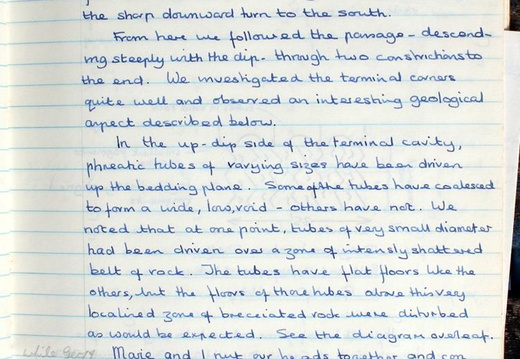 the sharp downward turn to the south.
From here we followed the passage - descend-
ing steeply with the dip - through two constrictions to
the end. We investigated the terminal corners
quite well and observed an interesting geological
aspect described below.
In the up-dip side of the terminal cavity,
phreatic tubes of varying sizes have been driven
up the bedding plane. Some of the tubes have coalesced
to form a wide, low, void - others have not. We
noted that at one point, tubes of very small diameter
had been driven over a zone of intensly shattered
belt of rock. The tubes have flat floors like the
others, but the floors of those tubes above this very
localised zone of brecciated rock were disturbed
as would be expected. See the diagram overleaf.
Marie and I put our heads together and can